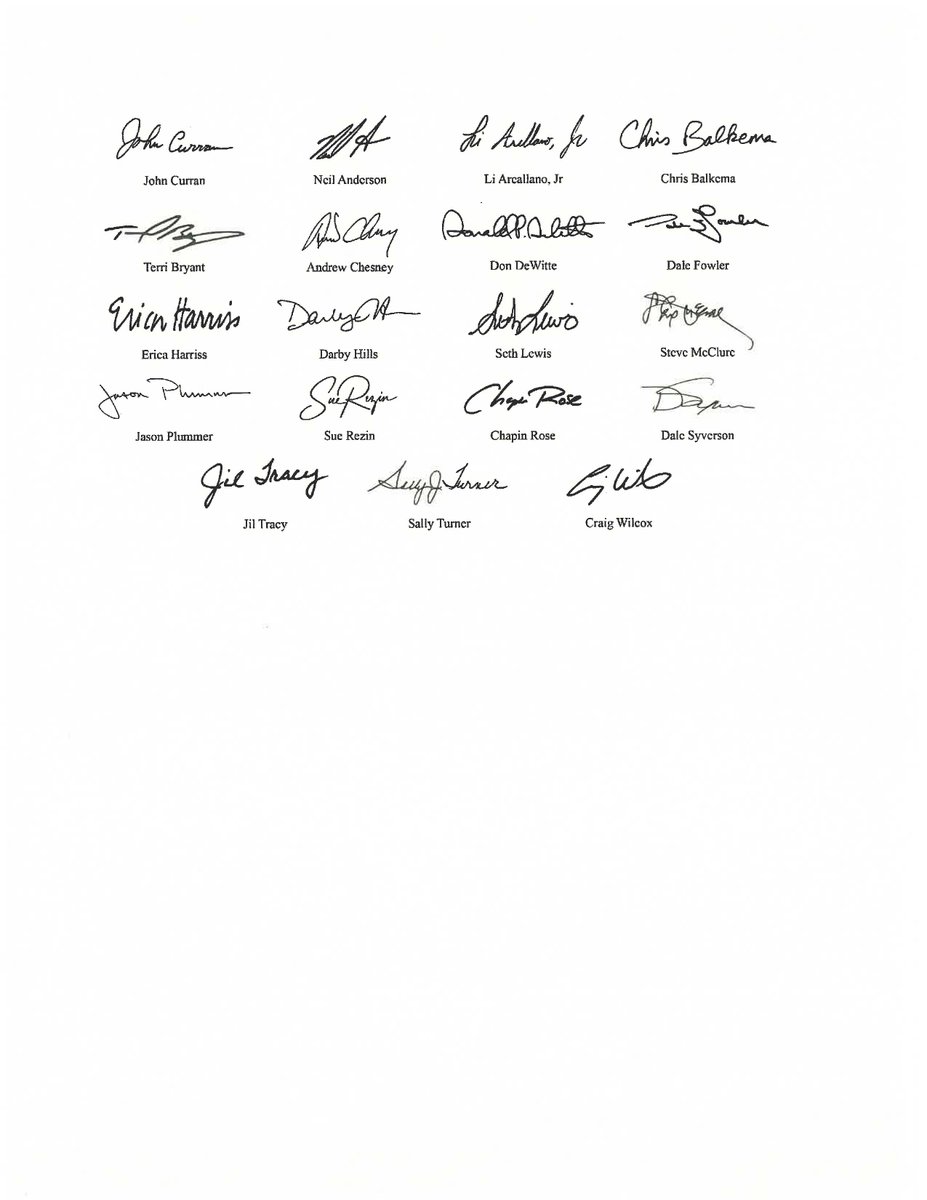 John Curran Neil Anderson Li Arellano, Jr Chris Balkema
John Curran Neil Anderson Li Arcallano, Jr Chris Balkema
Donald P. DeWitte
Terri Bryant Andrew Chesney Don DeWitte Dale Fowler
Erica Harriss Darby Seth Lewis
Erica Harriss Darby Hills Seth Lewis Steve McClure
Jason Plummer Sue Rezin Chapin Rose
Jason Plummer Sue Rezin Chapin Rose Dale Syverson
Jil Tracy Sally J. Turner
Jil Tracy Sally Turner Craig Wilcox